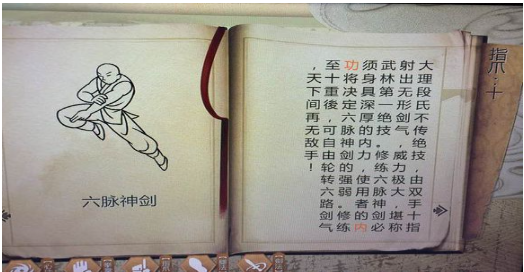 六脉神剑
指爪·十
大理段氏不传绝技，由双手十指
射出无形剑气，威力极大，堪称
武林第一绝技。修练六脉神剑必
须身具深厚的内力，使用者的内
功将决定六脉神剑的强弱。修练
至十重後，可自由轮转六路剑气
，天下間再无敌手！